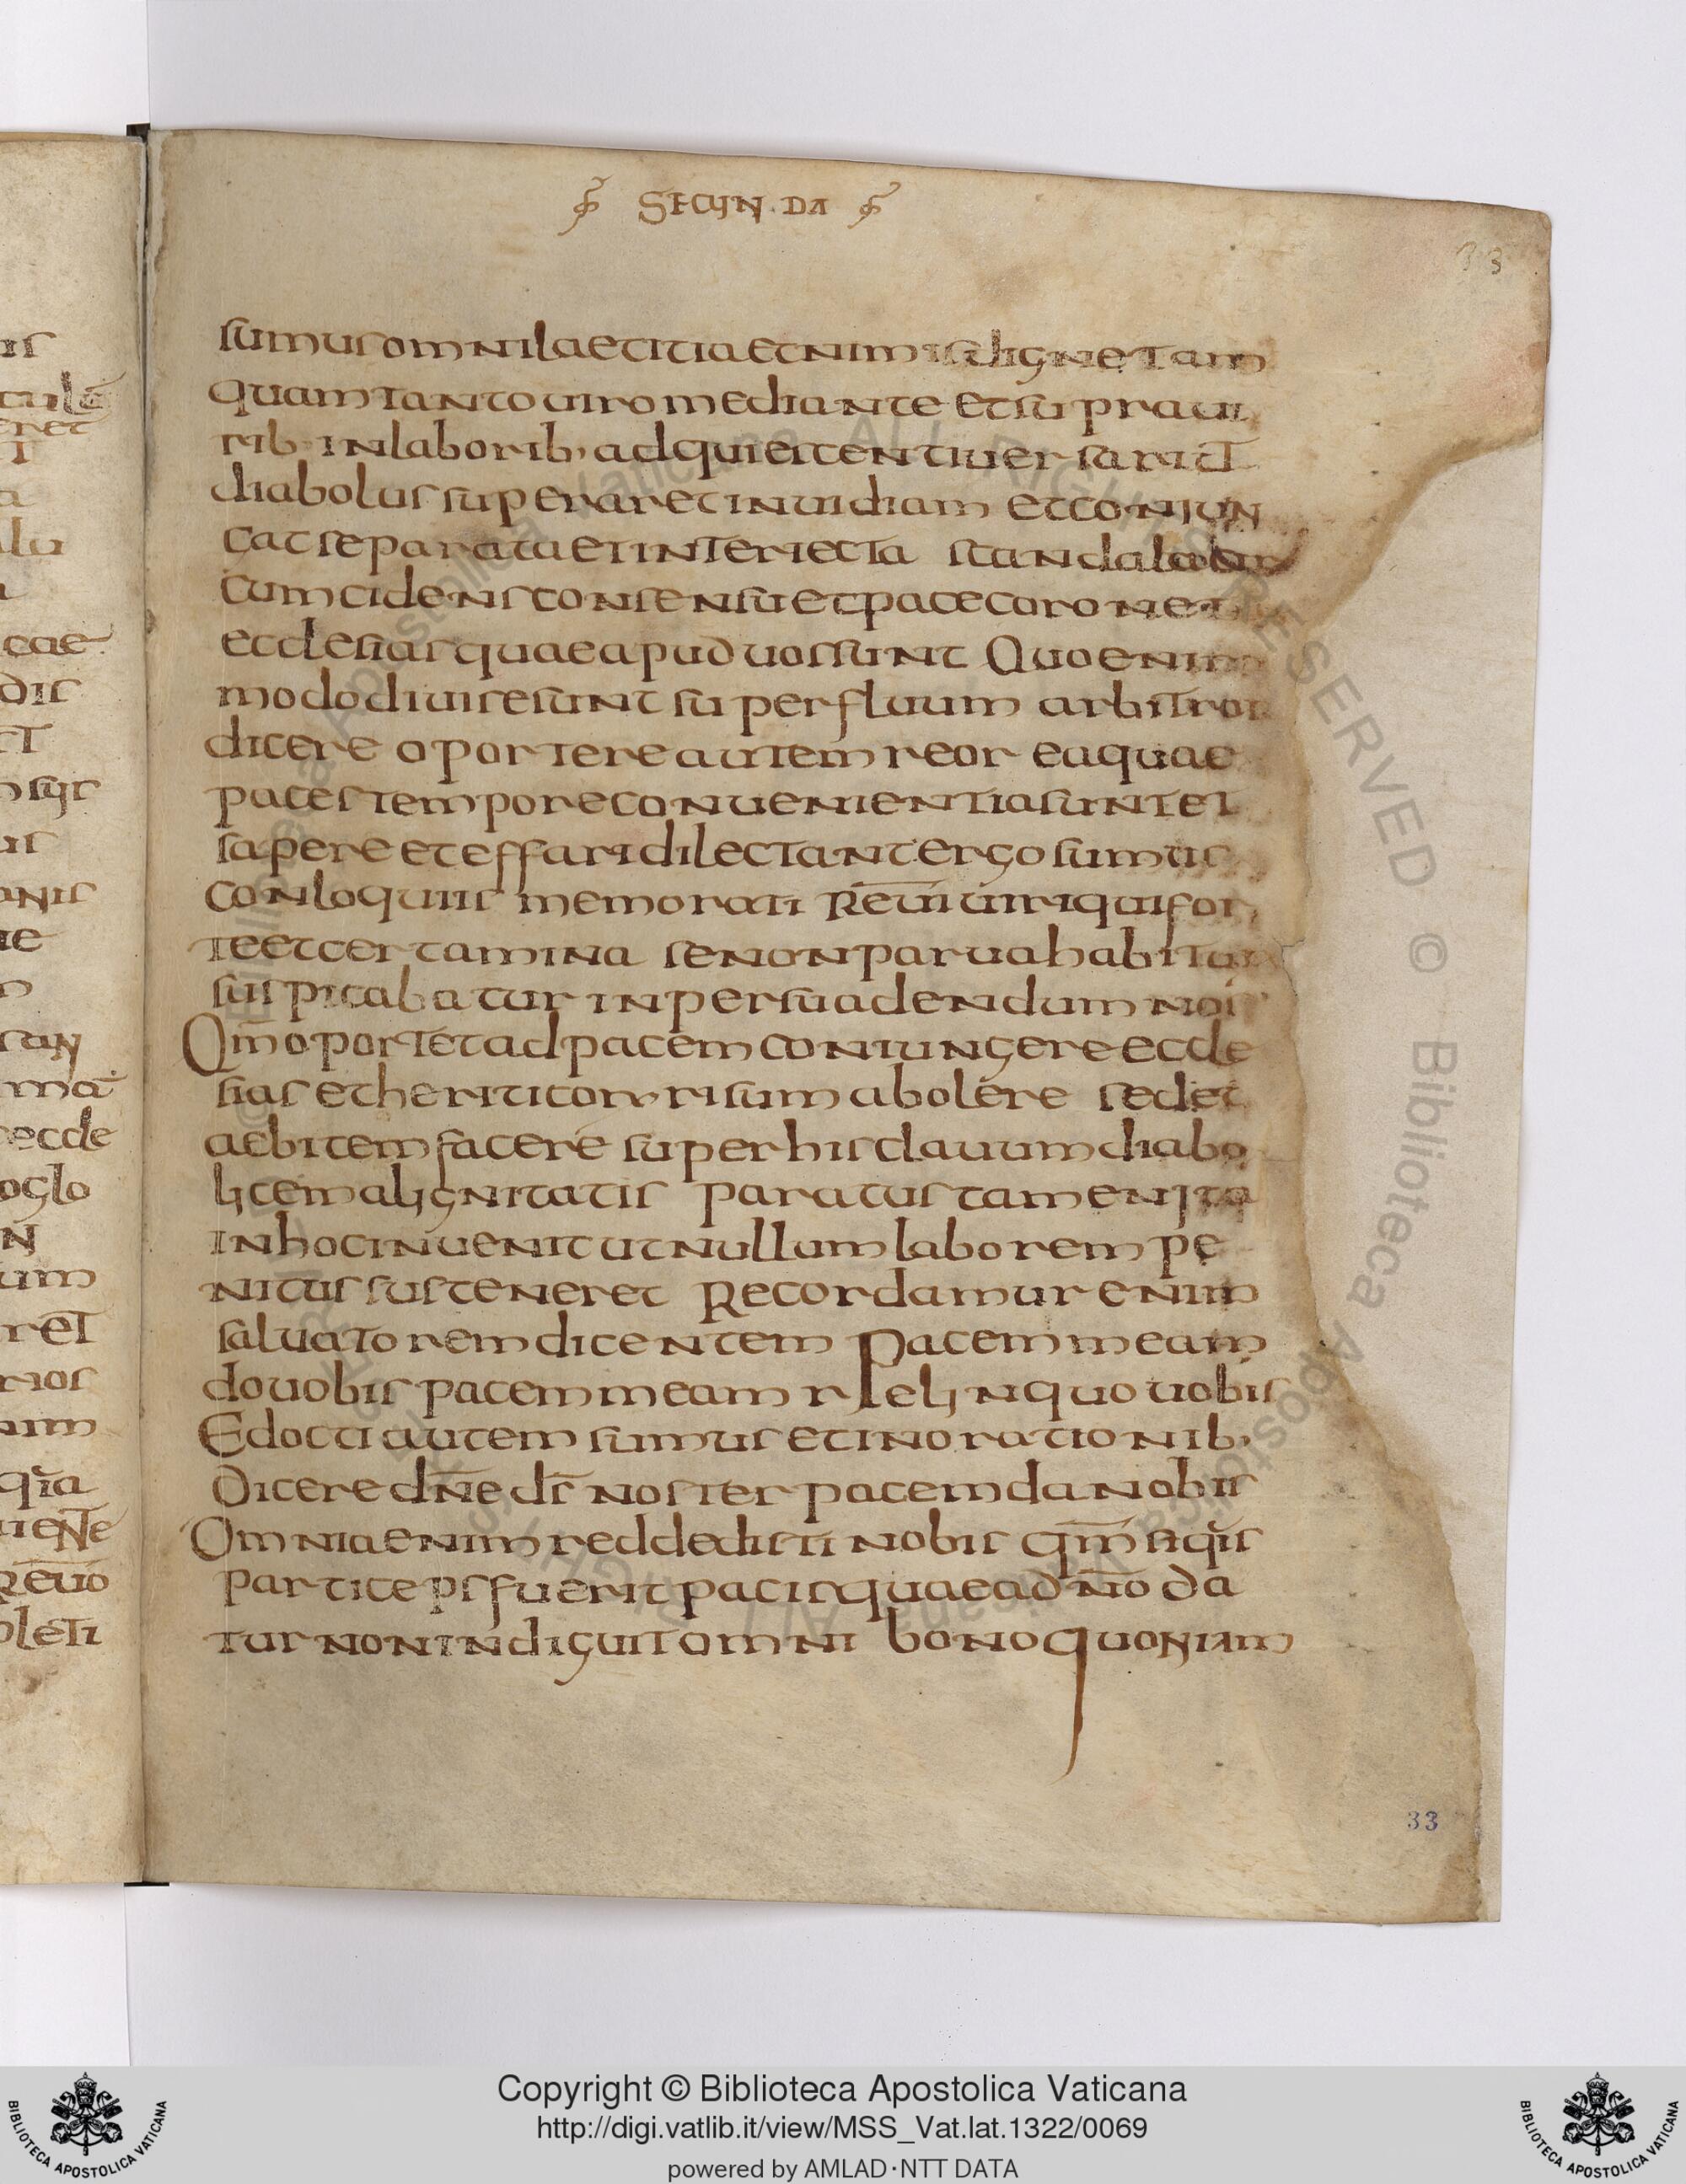 SECUN·DA
33
sumus omni laetitia et nimis digne tam
quam tanto uiro mediante et supra ui
rib· in laborib· adquiescenti uersari ut
diabolus superaret inuidiam et coniun
cat separata et interiecta scandala
cum cidens consensu et pace coronet
ecclesias quae apud uos sunt Quo enim
modo diuise sunt superfluum arbitror
dicere oportere autem reor ea quae
paces tempore conuenientia sunt et
sapere et effari dilectant ergo sumus
conloquiis memorati Reuī uiri qui for
te et certamina se non parua habitu
suspicabatur in persuadendum nos
Qm̄ oportet ad pacem coniungere eccle
sias et heriticorum risum abolere sed et
aebitem facere super his clauum diabo
lice malignitatis paratus tamen ita
in hoc inuenit ut nullum laborem pe
nitus susteneret Recordamur enim
saluatorem dicentem Pacem meam
do uobis pacem meam relinquo uobis
Edocti autem sumus et in orationib·
Dicere dn̄e ds̄ noster pacem da nobis
Omnia enim reddedisti nobis qm̄ siquis
particeps fuerit pacis quae ad n̄o da
tur non indiguit omni bono quoniam
33
Copyright © Biblioteca Apostolica Vaticana
http://digi.vatlib.it/view/MSS_Vat.lat.1322/0069
powered by AMLAD·NTT DATA